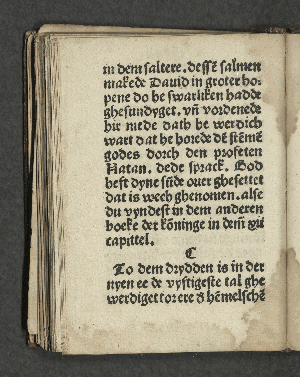 in dem saltere. dessē salmen
makede Dauid in groter ho⸗
pene do he swarliken hadde
ghesundyget. vñ vordenede
hir mede dath he werdich
wart dat he horede dē stēmē
godes dorch den profeten
Natan. dede sprack. God
heft dyne sūde ouer ghesettet
dat is wech ghenomen. alse
du vyndest in dem anderen
boeke der kōninge in dem xij
capittel.
C
To dem drydden is in der
nyen ee de vyftigeste tal ghe
werdiget to ere d hēmelschē